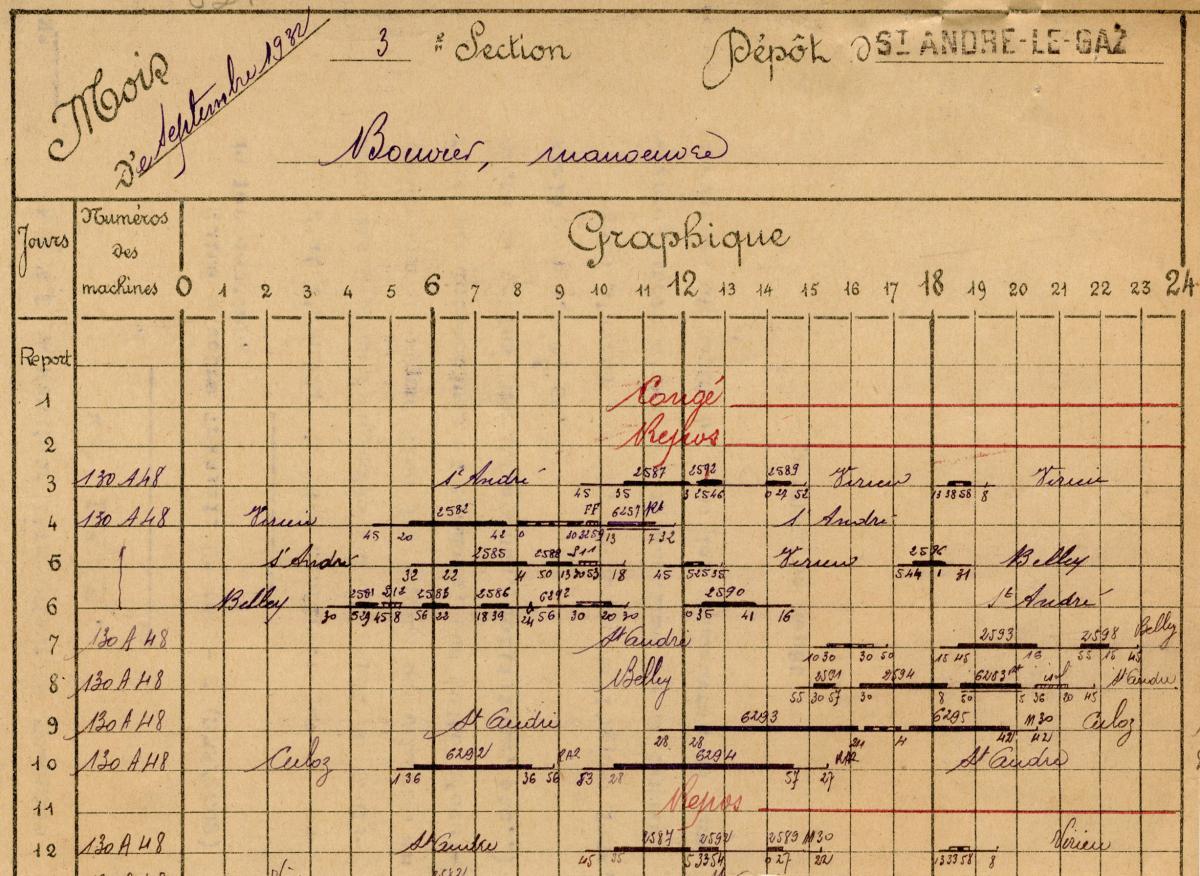 Mois de Septembre 1932
3 e Section
Dépôt d ST ANDRE-LE-GAZ
Bouvier, manoeuvre
Jours
Numéros des machines
Graphique
0 1 2 3 4 5 6 7 8 9 10 11 12 13 14 15 16 17 18 19 20 21 22 23 24
Report
1 Congé
2 Repos
3 130 A 48 St André 2587 2592 2589 Virieu Virieu
45 35 3 25 46 0 27 52 13 38 58 8
4 130 A 48 Virieu 2582 FF 6257 St André
45 20 42 0 13 7 32
5 St André 2585 2588 Virieu 2596 Belley
32 22 4 50 13 30 53 18 45 52 5 35 5 44 1 31
6 Belley 2581 2583 2586 6292 2590 St André
30 5 29 45 8 56 22 18 39 24 56 30 20 30 0 35 41 16
7 130 A 48 St André 2593 2598 Belley
10 30 30 50 15 45 16 55 15 45
8 130 A 48 Belley 2591 2594 6283 St André
55 30 57 30 8 50 5 36 20 45
9 130 A 48 St André 6293 6295 Culoz
28 28 4 42 42
10 130 A 48 Culoz 6292 6294 St André
1 36 36 56 28 57 27
11 Repos
12 130 A 48 St André 2587 2592 2589 Virieu
45 35 5 33 54 0 27 22 13 33 58 8